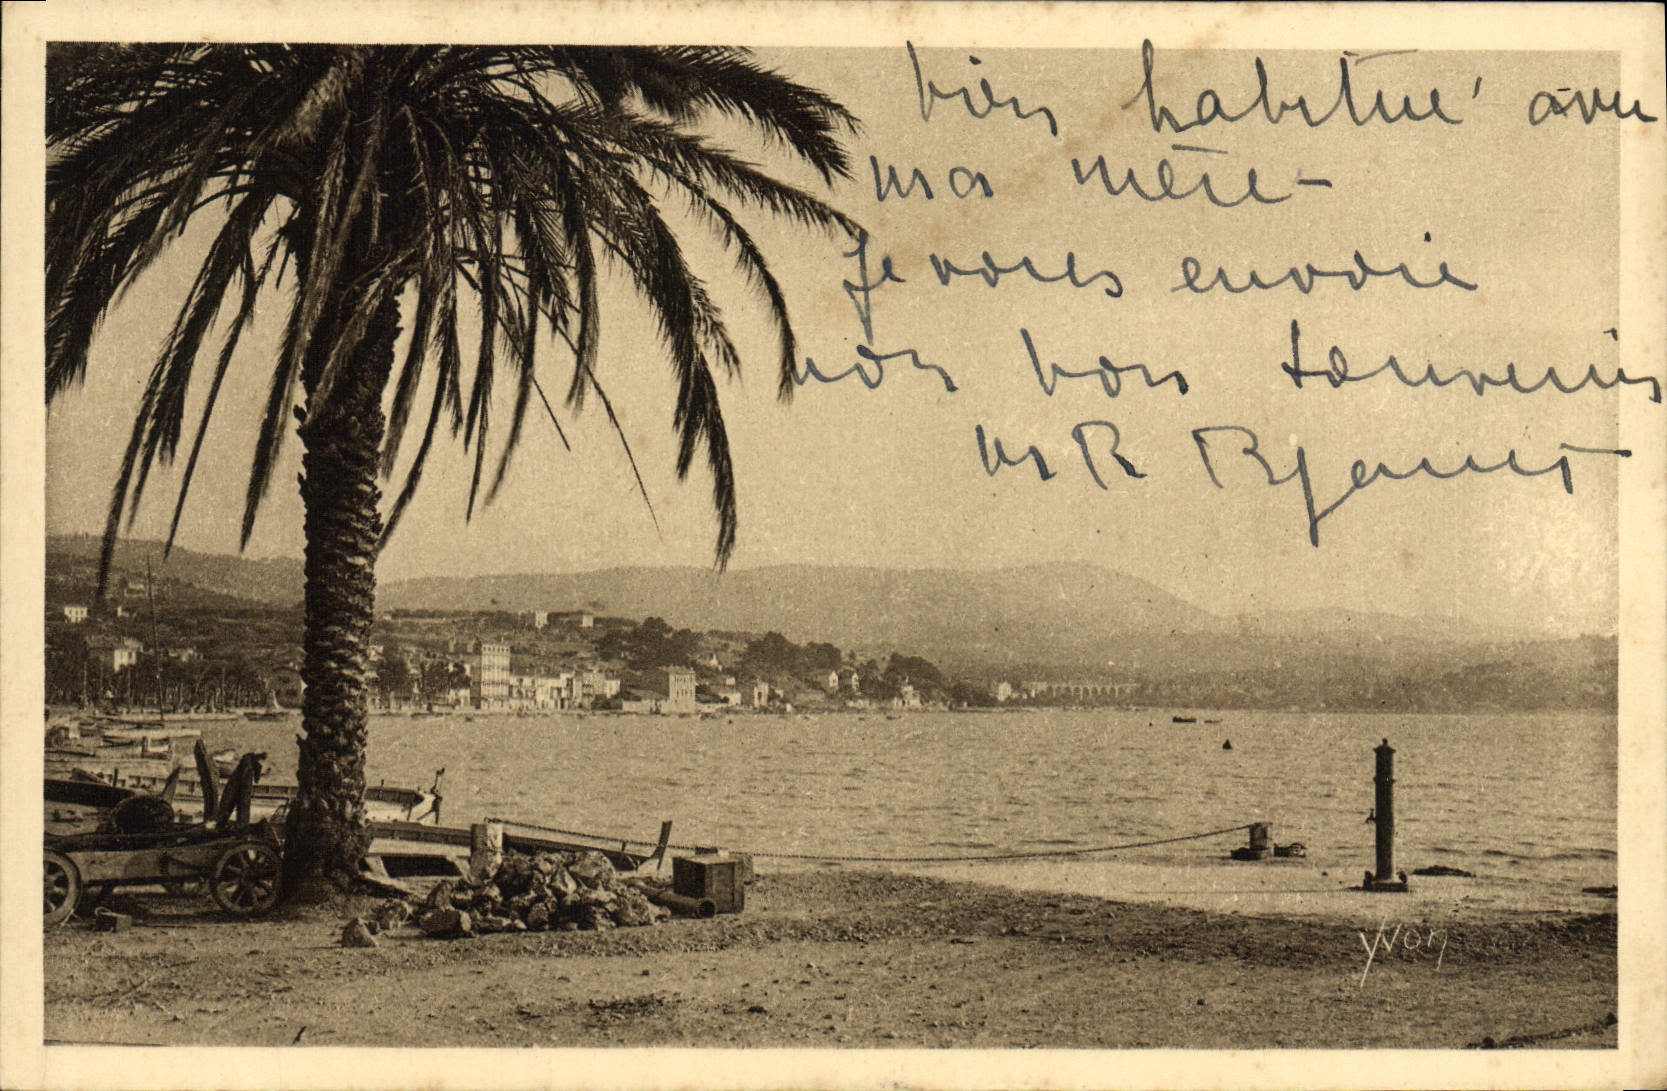 bien habitué avec
ma mère –
Je vous envoie
nos bons souvenirs
M R
Yvon